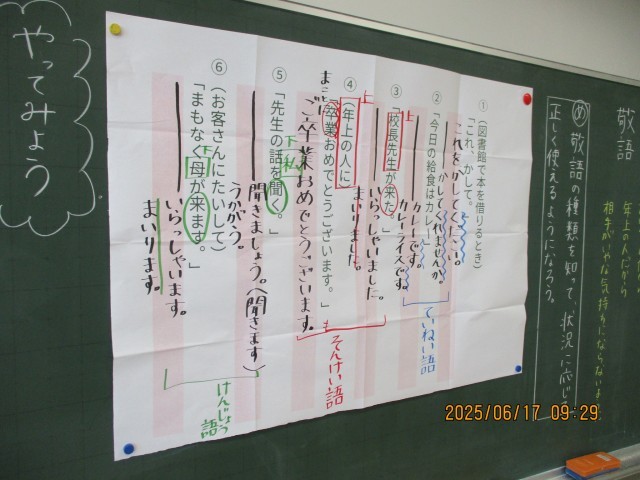 敬語
年上の人だから
相手がいやな気持ちにならないよ
め 敬語の種類を知って、状況に応じ
正しく使えるようになろう。
①(図書館で本を借りるとき)
「これ、かして。」
これをかしてください。
かしてくれませんか。
②「今日の給食はカレー
カレーです。
カレーライスです。
ていねい語
③「校長先生が来た
上
いらっしゃいました。
まいりました。
④(年上の人に)
上
「卒業おめでとうございます。」
ご卒業おめでとうございます。
そんけい語
⑤「先生の話を聞く。」
下 私
聞きましょう。(聞きます)
うかがう。
⑥(お客さんにたいして)
「まもなく母が来ます。」
下
いらっしゃいます。
まいります。
けんじょう語
やってみよう
2025/06/17 09:29